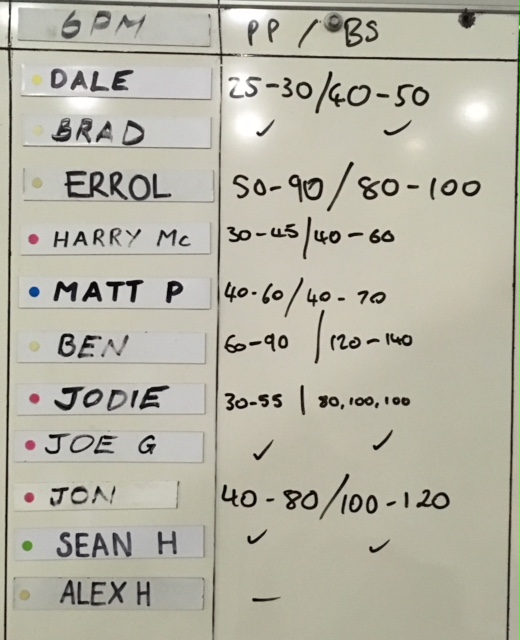 6PM PP / BS
DALE 25-30/40-50
BRAD ✓ ✓
ERROL 50-90/80-100
HARRY Mc 30-45/40-60
MATT P 40-60/40-70
BEN 60-90 / 120-140
JODIE 30-55 | 80,100,100
JOE G ✓ ✓
JON 40-80/100-120
SEAN H ✓ ✓
ALEX H —